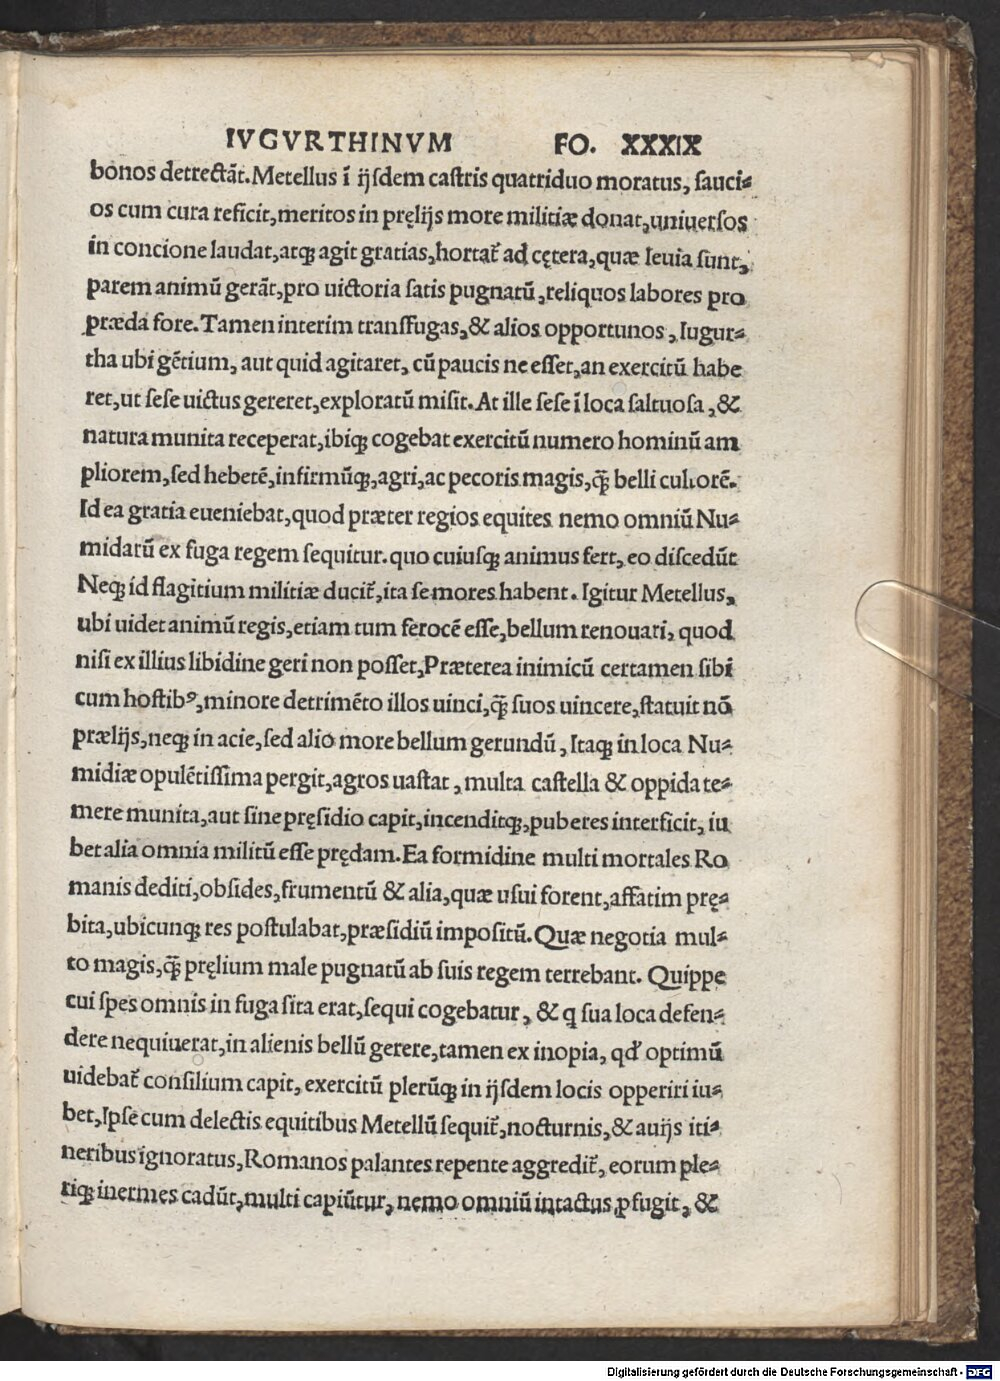 IVGVRTHINVM FO. XXXIX
bonos detrectāt. Metellus ī ijſdem caſtris quatriduo moratus, ſauci⸗
os cum cura reficit, meritos in pręlijs more militiæ donat, uniuerſos
in concione laudat, atqꝫ agit gratias, hortat᷒ ad cętera, quæ leuia ſunt,
parem animū gerāt, pro uictoria ſatis pugnatū, reliquos labores pro
præda fore. Tamen interim tranſfugas, & alios opportunos, Iugur⸗
tha ubi gētium, aut quid agitaret, cū paucis ne eſſet, an exercitū habe
ret, ut ſeſe uictus gereret, exploratū miſit. At ille ſeſe ī loca ſaltuoſa, &
natura munita receperat, ibiqꝫ cogebat exercitū numero hominū am
pliorem, ſed hebetē, infirmūqꝫ, agri, ac pecoris magis, q̄ꝫ belli cultorē.
Id ea gratia eueniebat, quod præter regios equites nemo omniū Nu⸗
midarū ex fuga regem ſequitur. quo cuiuſqꝫ animus fert, eo diſcedūt
Neqꝫ id flagitium militiæ ducit᷒, ita ſe mores habent. Igitur Metellus,
ubi uidet animū regis, etiam tum ferocē eſſe, bellum renouari, quod
niſi ex illius libidine geri non poſſet, Præterea inimicū certamen ſibi
cum hoſtibꝰ, minore detrimēto illos uinci, q̄ꝫ ſuos uincere, ſtatuit nō
prælijs, neqꝫ in acie, ſed alio more bellum gerundū, Itaqꝫ in loca Nu⸗
midiæ opulētiſſima pergit, agros uaſtat, multa caſtella & oppida te⸗
mere munita, aut ſine pręſidio capit, incenditqꝫ, puberes interficit, iu
bet alia omnia militū eſſe prędam. Ea formidine multi mortales Ro
manis dediti, obſides, frumentū & alia, quæ uſui forent, affatim prę⸗
bita, ubicunqꝫ res poſtulabat, præſidiū impoſitū. Quæ negotia mul⸗
to magis, q̄ꝫ pręlium male pugnatū ab ſuis regem terrebant. Quippe
cui ſpes omnis in fuga ſita erat, ſequi cogebatur, & q ſua loca defen⸗
dere nequiuerat, in alienis bellū gerere, tamen ex inopia, qď optimū
uidebat᷒ conſilium capit, exercitū plerūqꝫ in ijſdem locis opperiri iu⸗
bet, Ipſe cum delectis equitibus Metellū ſequit᷒, nocturnis, & auijs iti⸗
neribus ignoratus, Romanos palantes repente aggredit᷒, eorum ple⸗
riqꝫ inermes cadūt, multi capiūtur, nemo omniū intactus ꝓfugit, &
Digitalisierung gefördert durch die Deutsche Forschungsgemeinschaft - DFG